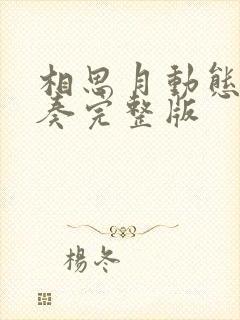 相思月動態
奏完整版
楊冬